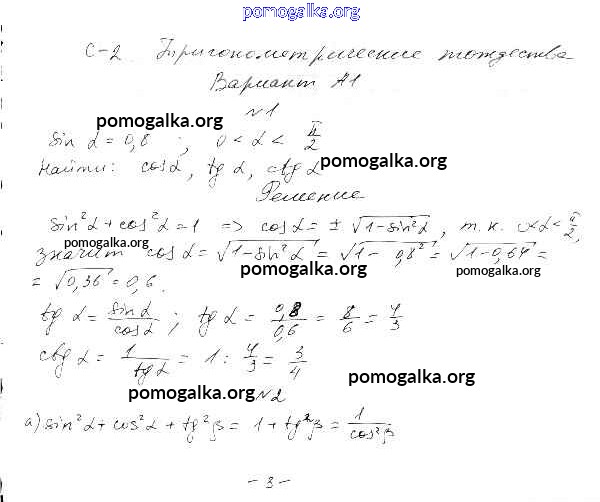 pomogalka.org
С-2. Тригонометрические тождества
Вариант А1
№1
pomogalka.org
sin α = 0,8 ; 0 < α < π/2
Найти: cos α, tg α, ctg α
pomogalka.org
Решение
sin²α + cos²α = 1 => cos α = ± √(1-sin²α), т.к. 0<α<π/2,
pomogalka.org
значит cos α = √(1-sin²α) = √(1-0,8²) = √(1-0,64) =
pomogalka.org
pomogalka.org
= √0,36 = 0,6.
tg α = sin α/cos α ; tg α = 0,8/0,6 = 8/6 = 4/3
ctg α = 1/tg α = 1 : 4/3 = 3/4
pomogalka.org
pomogalka.org
№2
а) sin²α + cos²α + tg²β = 1 + tg²β = 1/cos²β
- 3 -